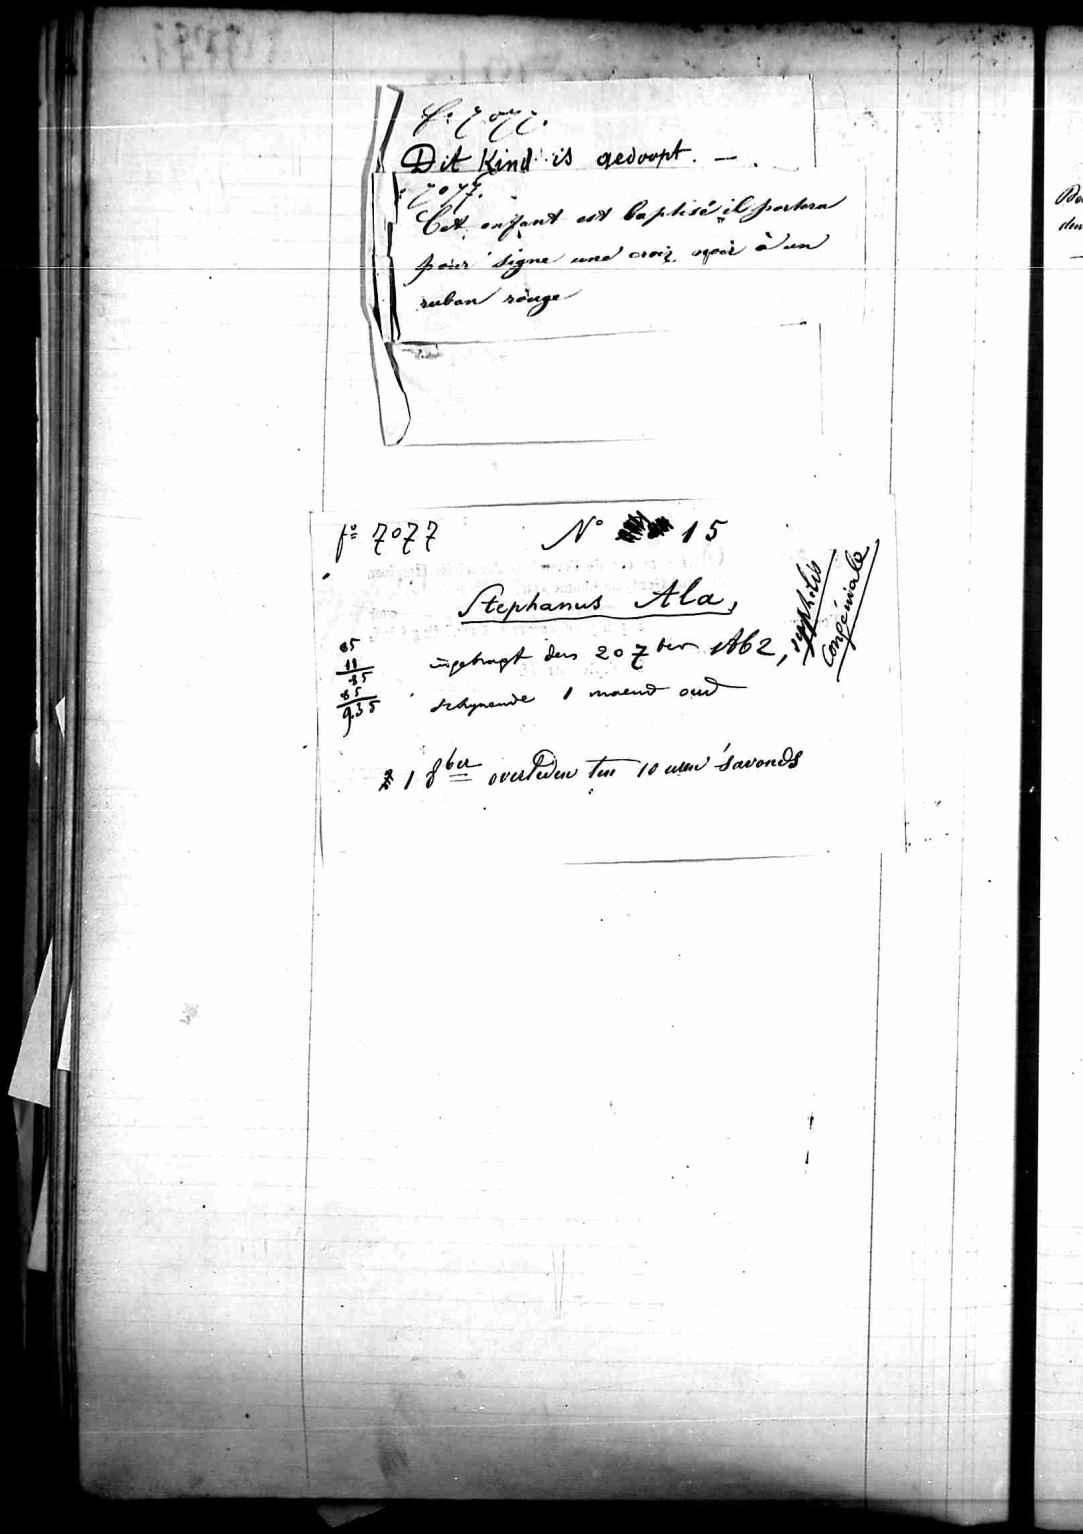 f° 7077.
Dit Kind is gedoopt. —
7077.
Cet enfant est baptisé il portera
pour signe une croix noir à un
ruban rouge
f° 7077 N° 15
Stephanus Ala,
syphilis
congéniale
85
11
85
85
9.35
ingebragt den 20 7ber 1862,
schynende 1 maend oud
1 8ber overleden ten 10 uren 's'avonds
Be
den